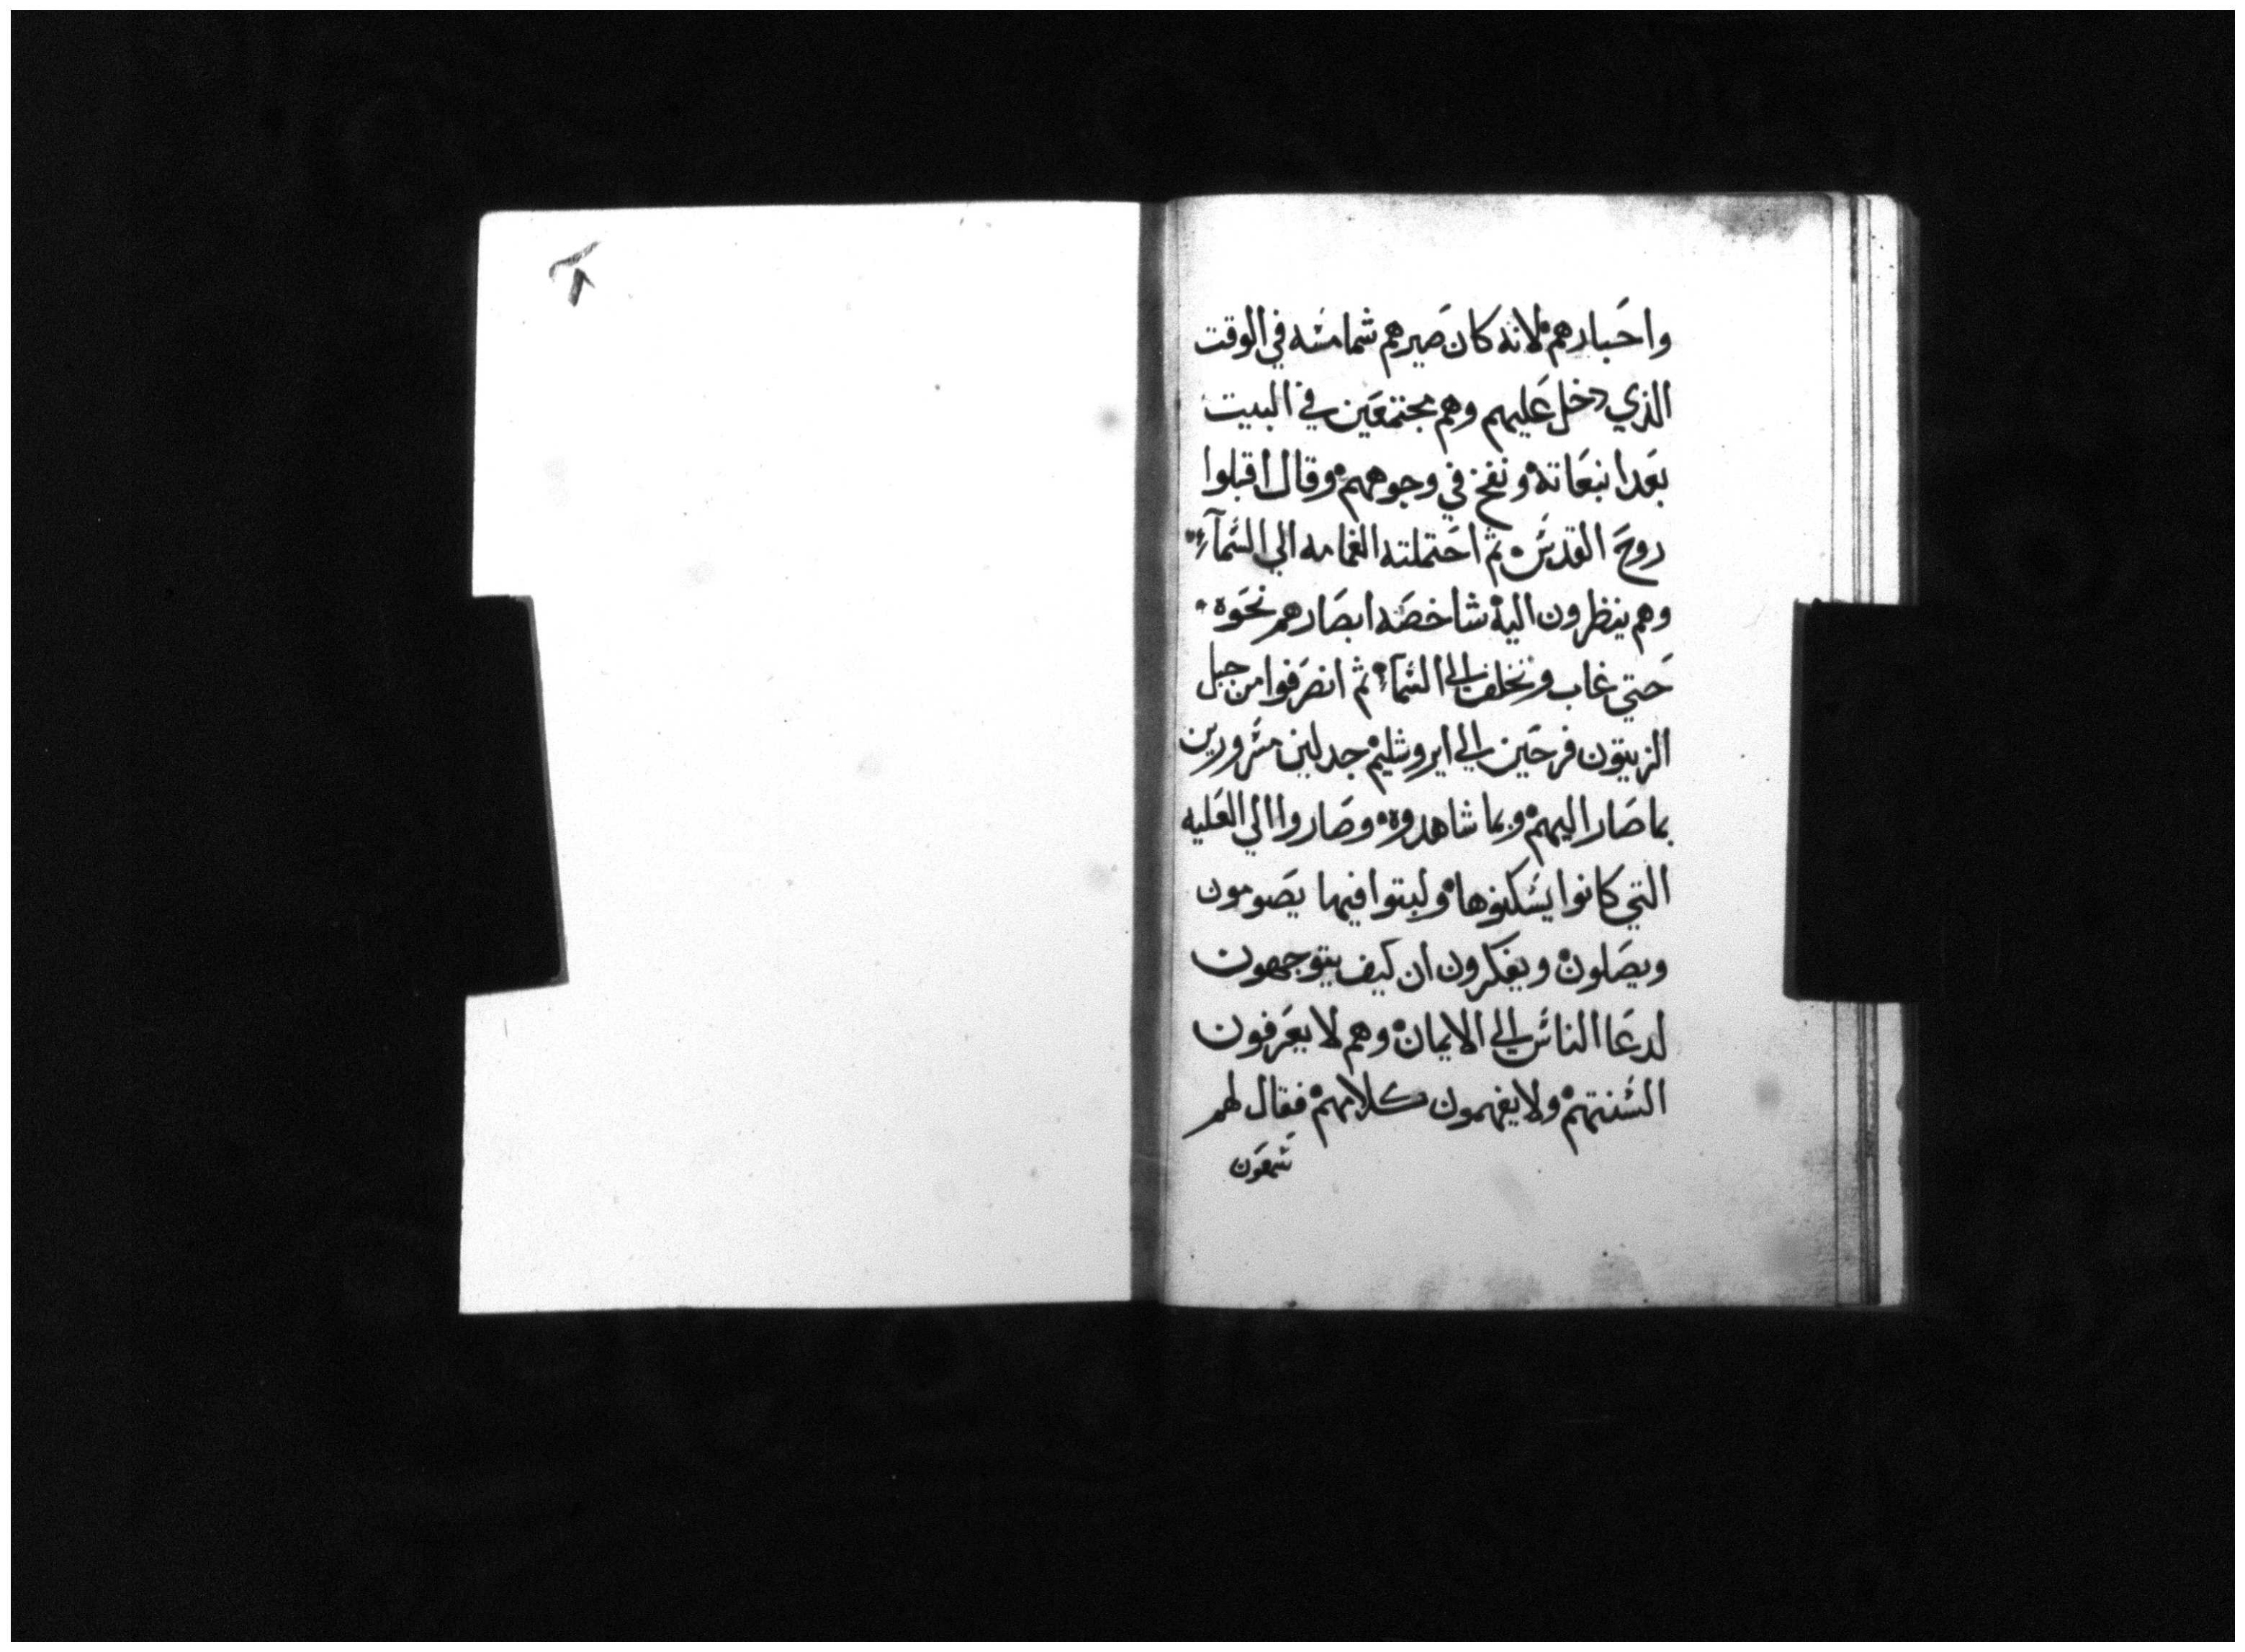 واحبارهم لانه كان صيرهم شمامسه في الوقت
الذي دخل عليهم وهم مجتمعين في البيت
بعد انبعاته ونفخ في وجوههم وقال اقبلوا
روح القدس ثم احتملته الغمامه الي السمآء
وهم ينظرون اليه شاخصه ابصارهم نحوه
حتي غاب وتخلف الي السمآء ثم انصرفوا من جبل
الزيتون فرحين الي ايروشليم جدلين مسرورين
بما صار اليهم وبما شاهدوه وصاروا الي العليه
التي كانوا يسكنوها ولبتوا فيها يصومون
ويصلون ويفكرون ان كيف يتوجهون
لدعا الناس الي الايمان وهم لا يعرفون
السنتهم ولا يفهمون كلامهم فقال لهم
شمعون